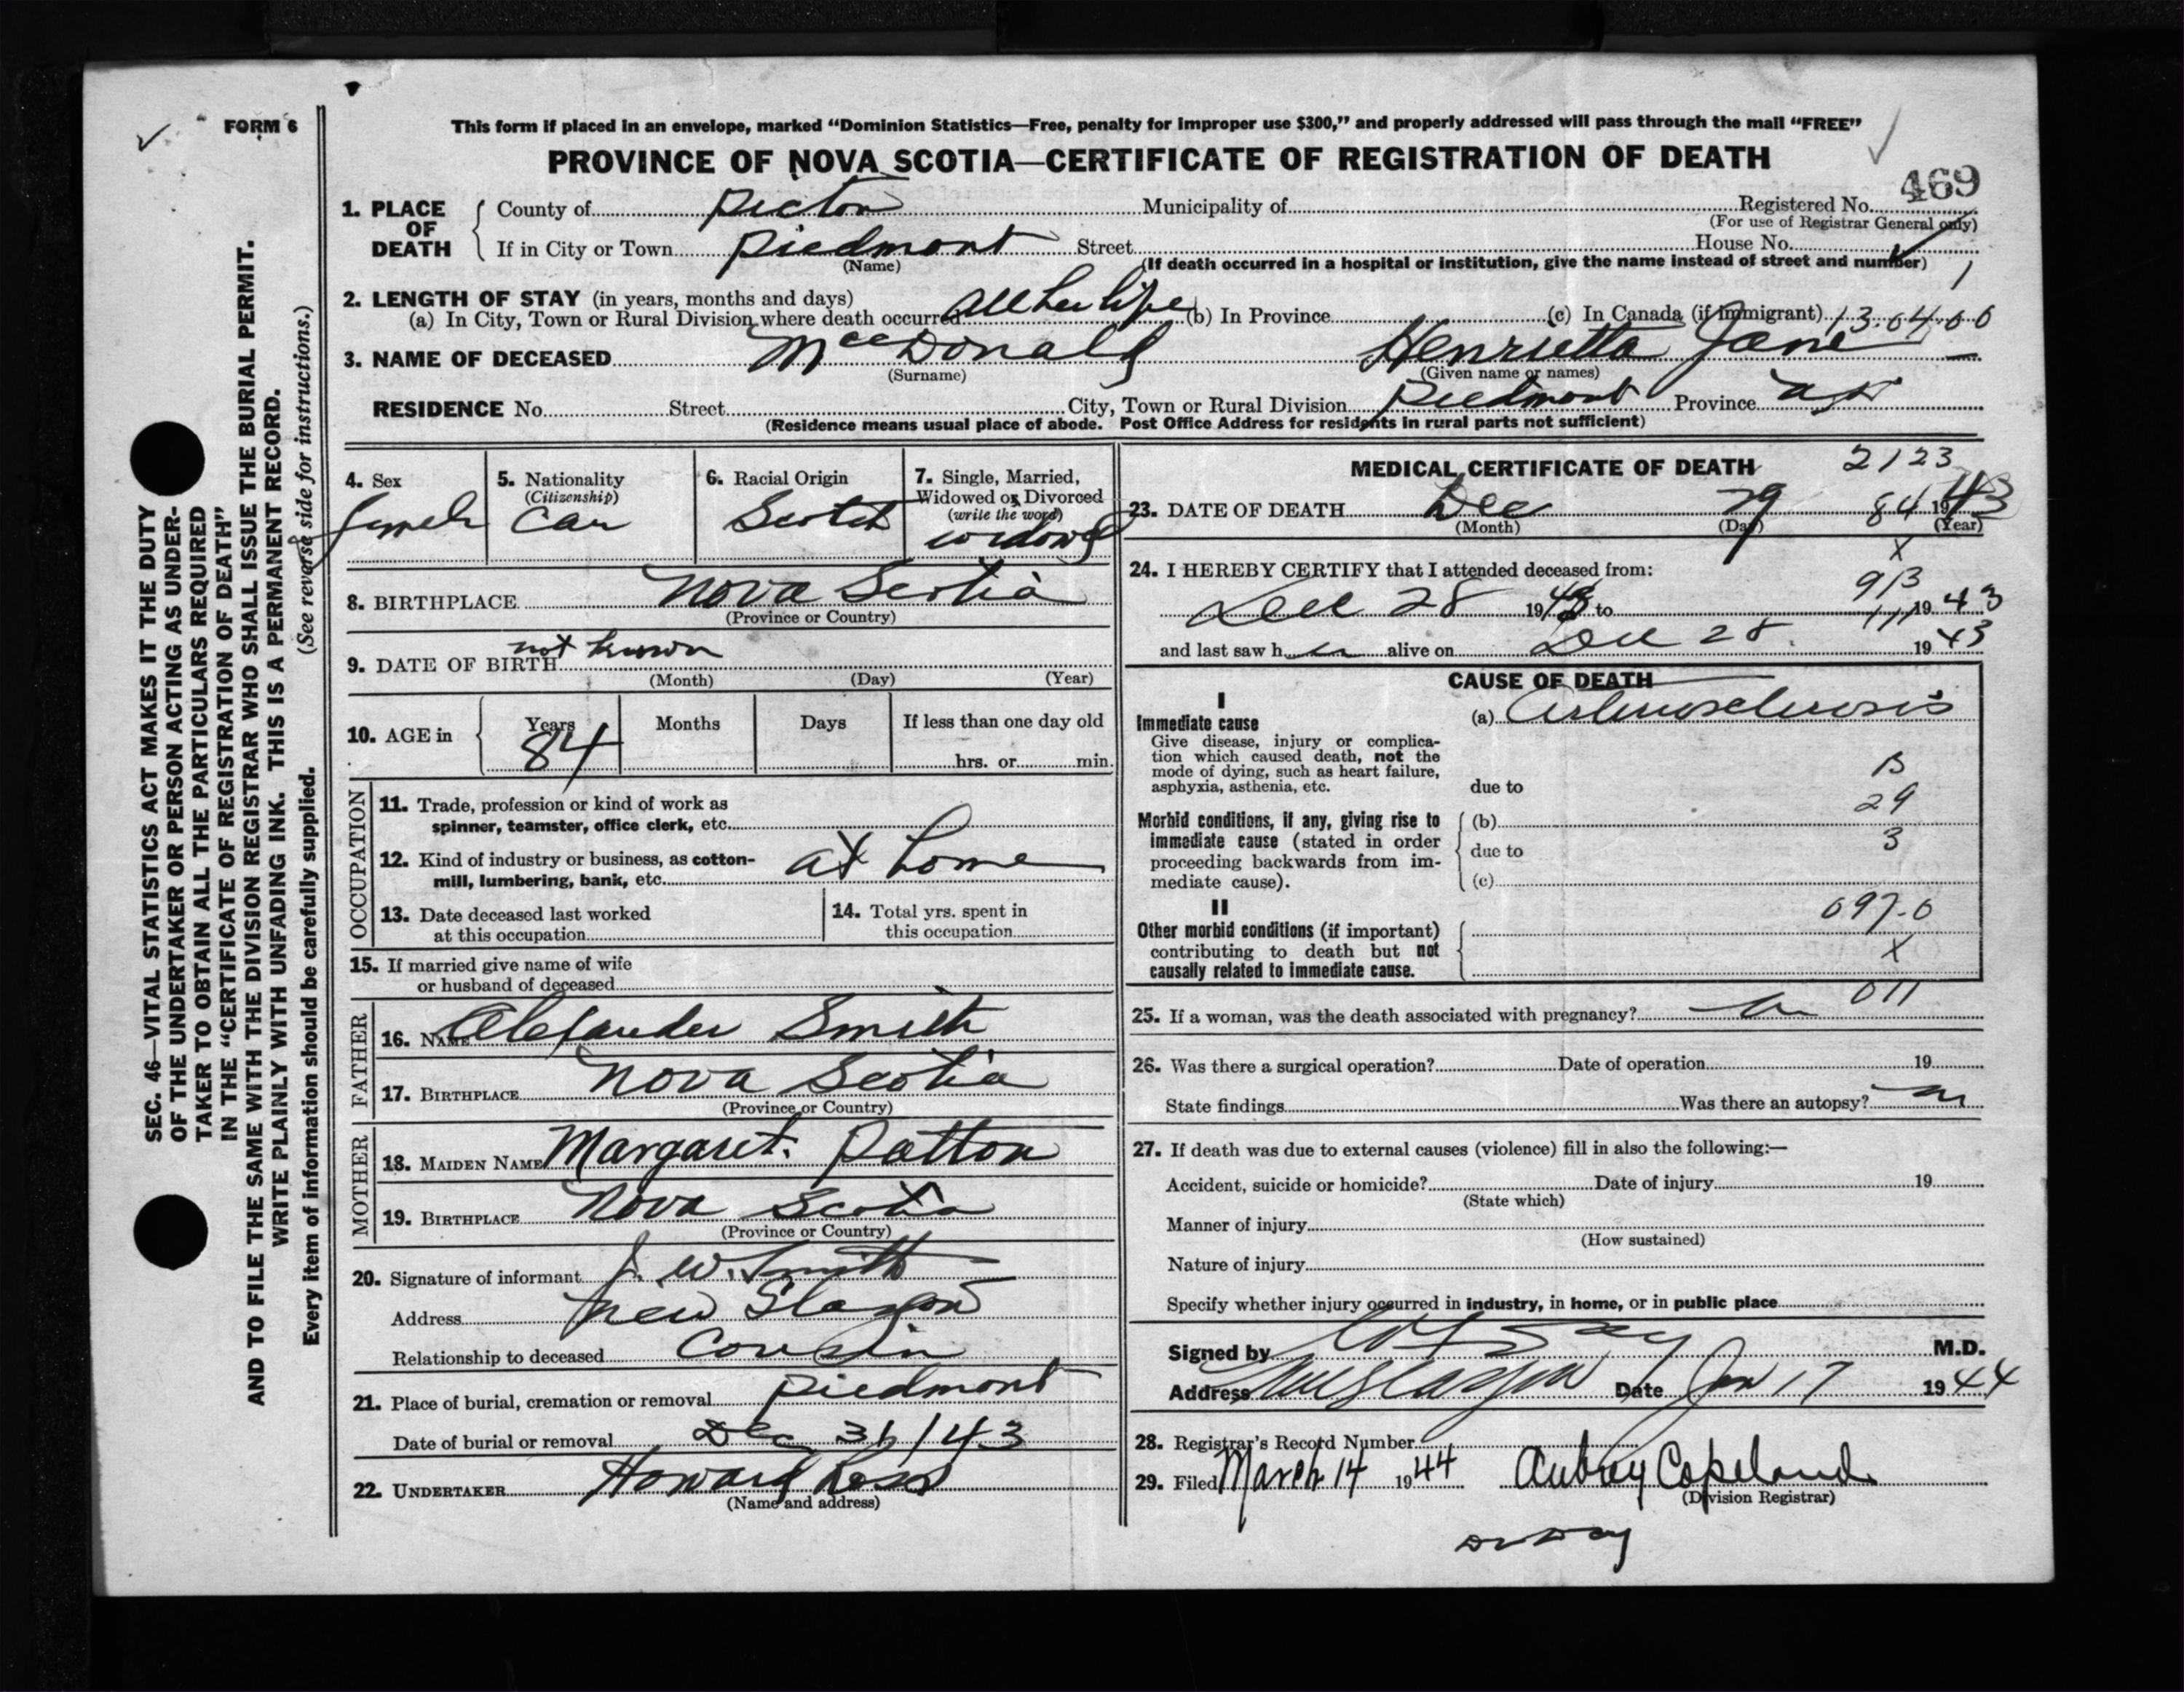 FORM 6
This form if placed in an envelope, marked “Dominion Statistics—Free, penalty for improper use $300,” and properly addressed will pass through the mail “FREE”
PROVINCE OF NOVA SCOTIA—CERTIFICATE OF REGISTRATION OF DEATH
469
1. PLACE OF DEATH
County of Pictou Municipality of Registered No.
(For use of Registrar General only)
If in City or Town Piedmont Street House No.
(Name)
(If death occurred in a hospital or institution, give the name instead of street and number)
1
2. LENGTH OF STAY (in years, months and days)
(a) In City, Town or Rural Division where death occurred all her life (b) In Province (c) In Canada (if immigrant) 13.04.00
3. NAME OF DECEASED MacDonald Henrietta Jane
(Surname) (Given name or names)
RESIDENCE No. Street City, Town or Rural Division Piedmont Province N.S.
(Residence means usual place of abode. Post Office Address for residents in rural parts not sufficient)
4. Sex
Female
5. Nationality
(Citizenship)
Can
6. Racial Origin
Scotch
7. Single, Married,
Widowed or Divorced
(write the word)
widowed
8. BIRTHPLACE Nova Scotia
(Province or Country)
9. DATE OF BIRTH not known
(Month) (Day) (Year)
10. AGE in
Years Months Days If less than one day old
84 hrs. or min.
OCCUPATION
11. Trade, profession or kind of work as
spinner, teamster, office clerk, etc.
12. Kind of industry or business, as cotton-
mill, lumbering, bank, etc. at home
13. Date deceased last worked
at this occupation
14. Total yrs. spent in
this occupation
15. If married give name of wife
or husband of deceased
FATHER
16. NAME Alexander Smith
17. BIRTHPLACE Nova Scotia
(Province or Country)
MOTHER
18. MAIDEN NAME Margaret Patton
19. BIRTHPLACE Nova Scotia
(Province or Country)
20. Signature of informant J. W. Smith
Address New Glasgow
Relationship to deceased Cousin
21. Place of burial, cremation or removal Piedmont
Date of burial or removal Dec 31/43
22. UNDERTAKER Howard Ross
(Name and address)
MEDICAL CERTIFICATE OF DEATH 2123
23. DATE OF DEATH Dec 29 84 1943
(Month) (Day) (Year)
X
24. I HEREBY CERTIFY that I attended deceased from:
913
Dec 28 1943 to 1943
111
and last saw her alive on Dec 28 1943
CAUSE OF DEATH
I
Immediate cause
Give disease, injury or complica-
tion which caused death, not the
mode of dying, such as heart failure,
asphyxia, asthenia, etc.
(a) Arteriosclerosis
due to
Morbid conditions, if any, giving rise to
immediate cause (stated in order
proceeding backwards from im-
mediate cause).
29
(b)
3
due to
(c)
II
Other morbid conditions (if important)
contributing to death but not
causally related to immediate cause.
097-0
X
011
25. If a woman, was the death associated with pregnancy? no
26. Was there a surgical operation? Date of operation 19
State findings Was there an autopsy? no
27. If death was due to external causes (violence) fill in also the following:—
Accident, suicide or homicide? Date of injury 19
(State which)
Manner of injury
(How sustained)
Nature of injury
Specify whether injury occurred in industry, in home, or in public place
Signed by Day M.D.
Address New Glasgow Date Jan 17 1944
28. Registrar's Record Number
29. Filed March 14 1944 Aubrey Copeland
(Division Registrar)
Dr Day
SEC. 46—VITAL STATISTICS ACT MAKES IT THE DUTY
OF THE UNDERTAKER OR PERSON ACTING AS UNDER-
TAKER TO OBTAIN ALL THE PARTICULARS REQUIRED
IN THE “CERTIFICATE OF REGISTRATION OF DEATH”
AND TO FILE THE SAME WITH THE DIVISION REGISTRAR WHO SHALL ISSUE THE BURIAL PERMIT.
WRITE PLAINLY WITH UNFADING INK. THIS IS A PERMANENT RECORD.
Every item of information should be carefully supplied. (See reverse side for instructions.)